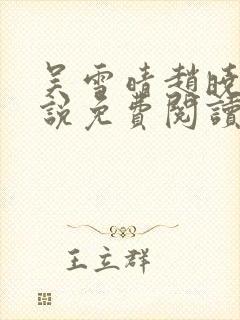 吴雪晴趙曉
說免費閱讀
王立群